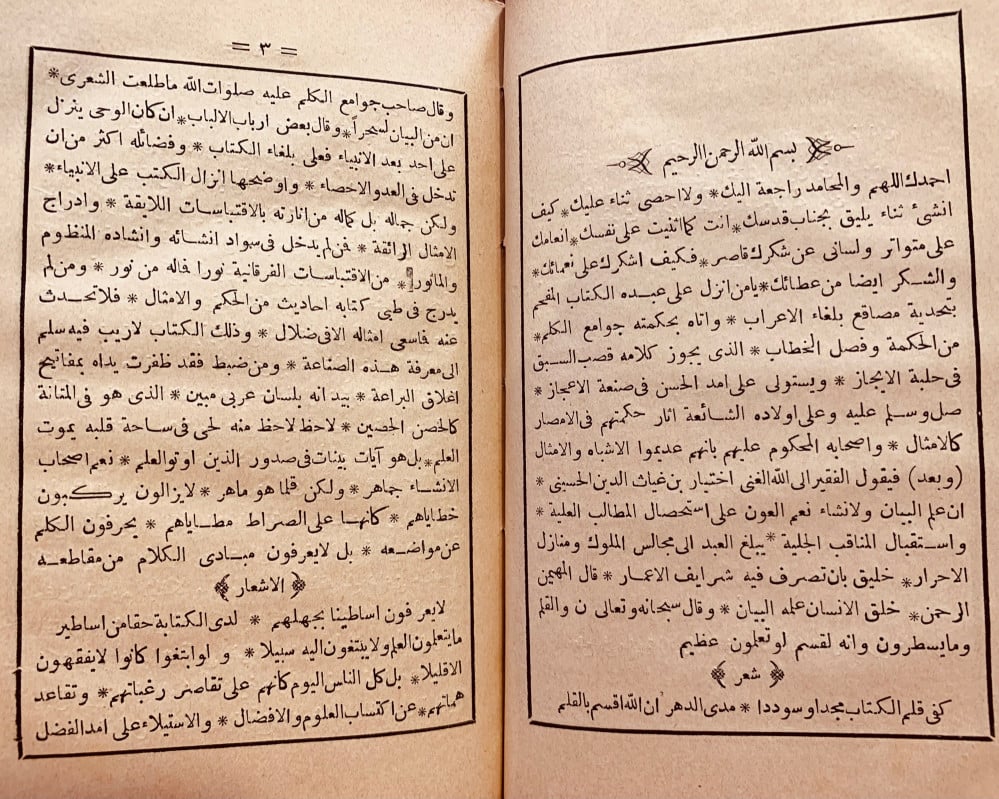 بسم الله الرحمن الرحيم
احمدك اللهم والمحامد راجعة اليك * ولا احصى ثناء عليك * كيف
انشئ ثناء يليق بجناب قدسك * انت كما اثنيت على نفسك * انعامك
على متواتر ولسانى عن شكرك قاصر * فكيف اشكرك على نعمائك *
والشكر ايضا من عطائك * يا من انزل على عبده الكتاب المفحم
بتحدية مصاقع بلغاء الاعراب * واتاه بحكمته جوامع الكلم *
من الحكمة وفصل الخطاب * الذى يجوز كلامه قصب السبق
فى حلبة الايجاز * ويستولى على امد الحسن فى صنعة الاعجاز *
صل وسلم عليه وعلى اولاده الشائعة اثار حكمتهم فى الامصار
كالامثال * واصحابه المحكوم عليهم بانهم عديموا الاشباه والامثال
(وبعد) فيقول الفقير الى الله الغنى اختيار بن غياث الدين الحسينى *
ان علم البيان ولانشاء نعم العون على استحصال المطالب العلية *
واستقبال المناقب الجلية * يبلغ العبد الى مجالس الملوك ومنازل
الاحرار * خليق بان تصرف فيه شرايف الاعمار * قال المهيمن
الرحمن * خلق الانسان علمه البيان * وقال سبحانه وتعالى ن والقلم
وما يسطرون وانه لقسم لو تعلمون عظيم
شعر
كفى قلم الكتاب مجدا وسوددا * مدى الدهر ان الله اقسم بالقلم
= ٣ =
وقال صاحب جوامع الكلم عليه صلوات الله ما طلعت الشعرى *
ان من البيان لسحراً * وقال بعض ارباب الالباب * ان كان الوحى ينزل
على احد بعد الانبياء فعلى بلغاء الكتاب * وفضائله اكثر من ان
تدخل فى العد والاحصاء * واوضحها انزال الكتب على الانبياء *
ولكن جماله بل كماله من اثارته بالاقتباسات اللايقة * وادراج
الامثال الرائقة * فمن لم يدخل فى سواد انشائه وانشاده المنظوم
والماثور * من الاقتباسات الفرقانية نورا فماله من نور * ومن لم
يدرج فى طى كتابه احاديث من الحكم والامثال * فلا تحدث
عنه فاسعى امثاله الا فى ضلال * وذلك الكتاب لاريب فيه سلم
الى معرفة هذه الصناعة * ومن ضبط فقد ظفرت يداه بمفاتيح
اغلاق البراعة * بيد انه بلسان عربى مبين * الذى هو فى المتانة
كالحصن الحصين * لاحظ لاحظ منه لحى فى ساحة قلبه يموت
العلم * بل هو آيات بينات فى صدور الذين اوتو العلم * نعم اصحاب
الانشاء جماهر * ولكن قلما هو ماهر * لا يزالون يركبون
خطاياهم * كأنها على الصراط مطاياهم * يحرفون الكلم
عن مواضعه * بل لا يعرفون مبادى الكلام من مقاطعه
الاشعار
لايعرفون اساطينا بجهلهم * لدى الكتابة حقا من اساطير
ما يتعلمون العلم ولا يبتغون اليه سبيلا * ولو ابتغوا كانوا لا يفقهون
الا قليلا * بل كل الناس اليوم كأنهم على تقاصر رغباتهم * وتقاعد
هماتهم * عن اكتساب العلوم والافضال * والاستيلاء على امد الفضل